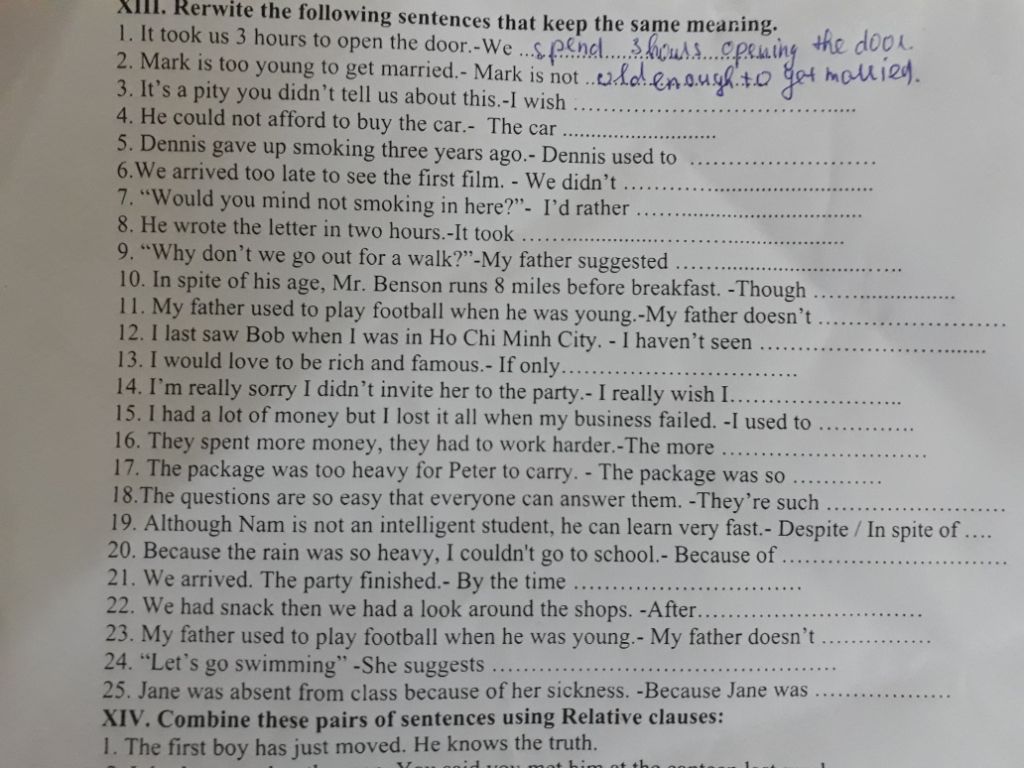 XIII. Rerwite the following sentences that keep the same meaning.
1. It took us 3 hours to open the door.-We ..spend....3 hours...opening the door.
2. Mark is too young to get married.- Mark is not ..old.enough.to get married.
3. It's a pity you didn't tell us about this.-I wish ..................................................
4. He could not afford to buy the car.- The car ............................
5. Dennis gave up smoking three years ago.- Dennis used to ..................................
6.We arrived too late to see the first film. - We didn't .............................................
7. “Would you mind not smoking in here?”- I'd rather .........................................
8. He wrote the letter in two hours.-It took ..........................................................
9. “Why don't we go out for a walk?”-My father suggested .........................................
10. In spite of his age, Mr. Benson runs 8 miles before breakfast. -Though .........................
11. My father used to play football when he was young.-My father doesn't ..............................
12. I last saw Bob when I was in Ho Chi Minh City. - I haven't seen .......................................
13. I would love to be rich and famous.- If only........................................
14. I'm really sorry I didn't invite her to the party.- I really wish I............................
15. I had a lot of money but I lost it all when my business failed. -I used to .............
16. They spent more money, they had to work harder.-The more ..................................
17. The package was too heavy for Peter to carry. - The package was so ............
18.The questions are so easy that everyone can answer them. -They're such ..............................
19. Although Nam is not an intelligent student, he can learn very fast.- Despite / In spite of ....
20. Because the rain was so heavy, I couldn't go to school.- Because of ......................................
21. We arrived. The party finished.- By the time ......................................
22. We had snack then we had a look around the shops. -After.....................................
23. My father used to play football when he was young.- My father doesn't ..................
24. “Let's go swimming” -She suggests .........................................................
25. Jane was absent from class because of her sickness. -Because Jane was .......................
XIV. Combine these pairs of sentences using Relative clauses:
1. The first boy has just moved. He knows the truth.